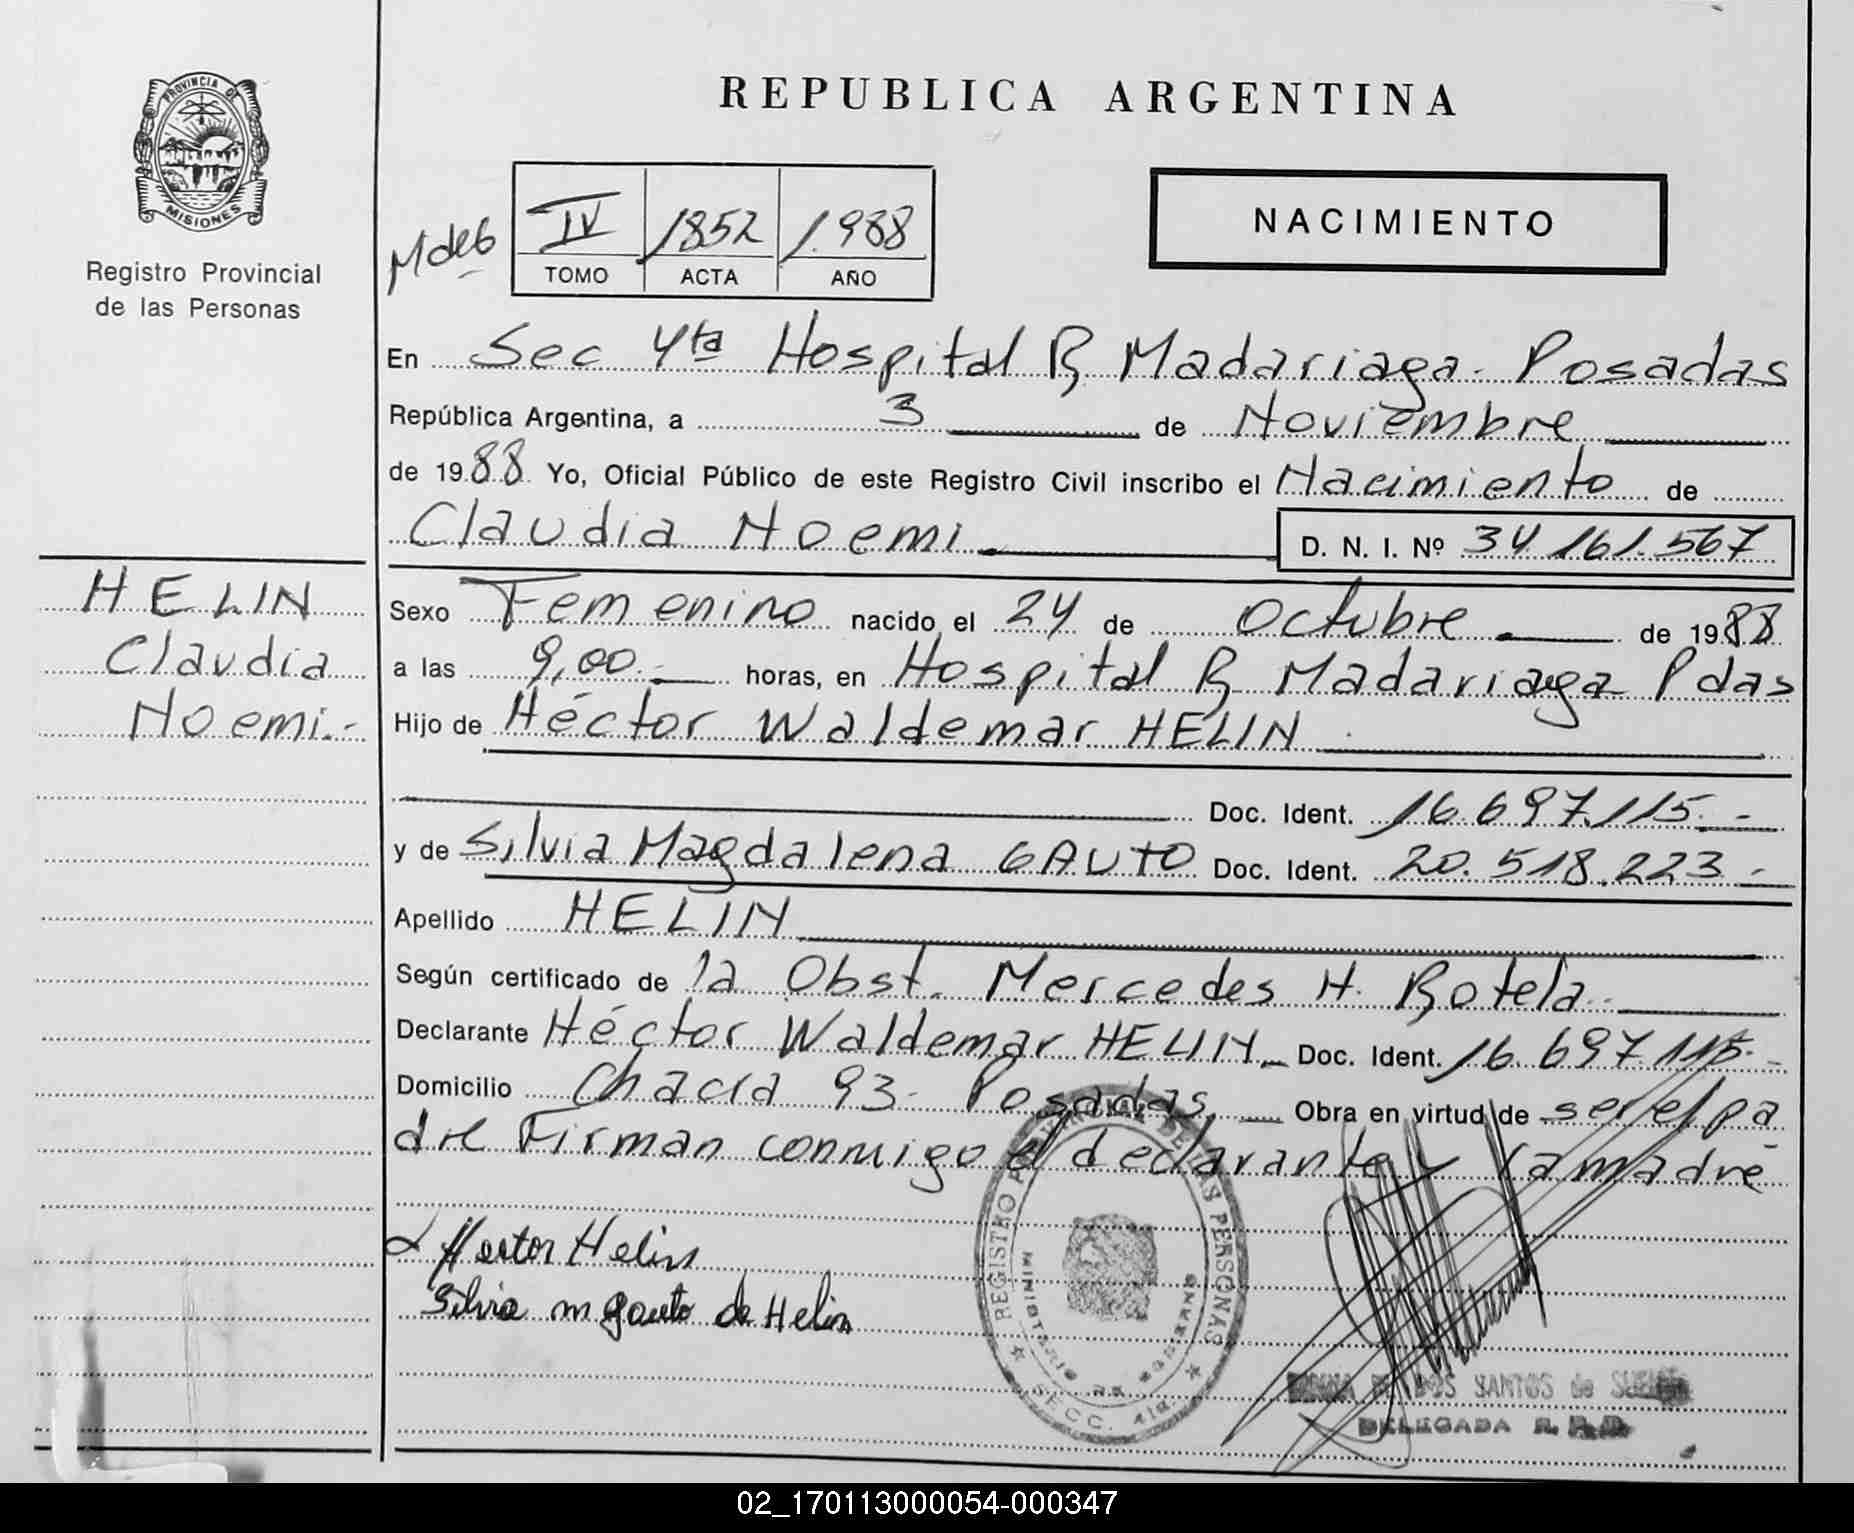 PROVINCIA DE
MISIONES
Registro Provincial
de las Personas
HELIN
Claudia
Noemi.-
REPUBLICA ARGENTINA
NACIMIENTO
IV 1852 1.988
TOMO ACTA AÑO
En Sec 4ta Hospital R Madariaga. Posadas
República Argentina, a 3 de Noviembre
de 1988 Yo, Oficial Público de este Registro Civil inscribo el Nacimiento de
Claudia Noemi. D. N. I. Nº 34.161.567
Sexo Femenino nacido el 24 de Octubre de 1988
a las 9,00.- horas, en Hospital R Madariaga Pdas
Hijo de Héctor Waldemar HELIN
Doc. Ident. 16.697.115.-
y de Silvia Magdalena GAUTO Doc. Ident. 20.518.223.-
Apellido HELIN
Según certificado de la Obst. Mercedes H. Rotela
Declarante Héctor Waldemar HELIN Doc. Ident. 16.697.115.-
Domicilio Chacra 93- Posadas. Obra en virtud de ser el pa
dre Firman conmigo el declarante y la madre
Hector Helin
Silvia m gauto de Helin
REGISTRO PROVINCIAL DE LAS PERSONAS
SECC. 4ta.
DOS SANTOS de
DELEGADA R.
02_170113000054-000347